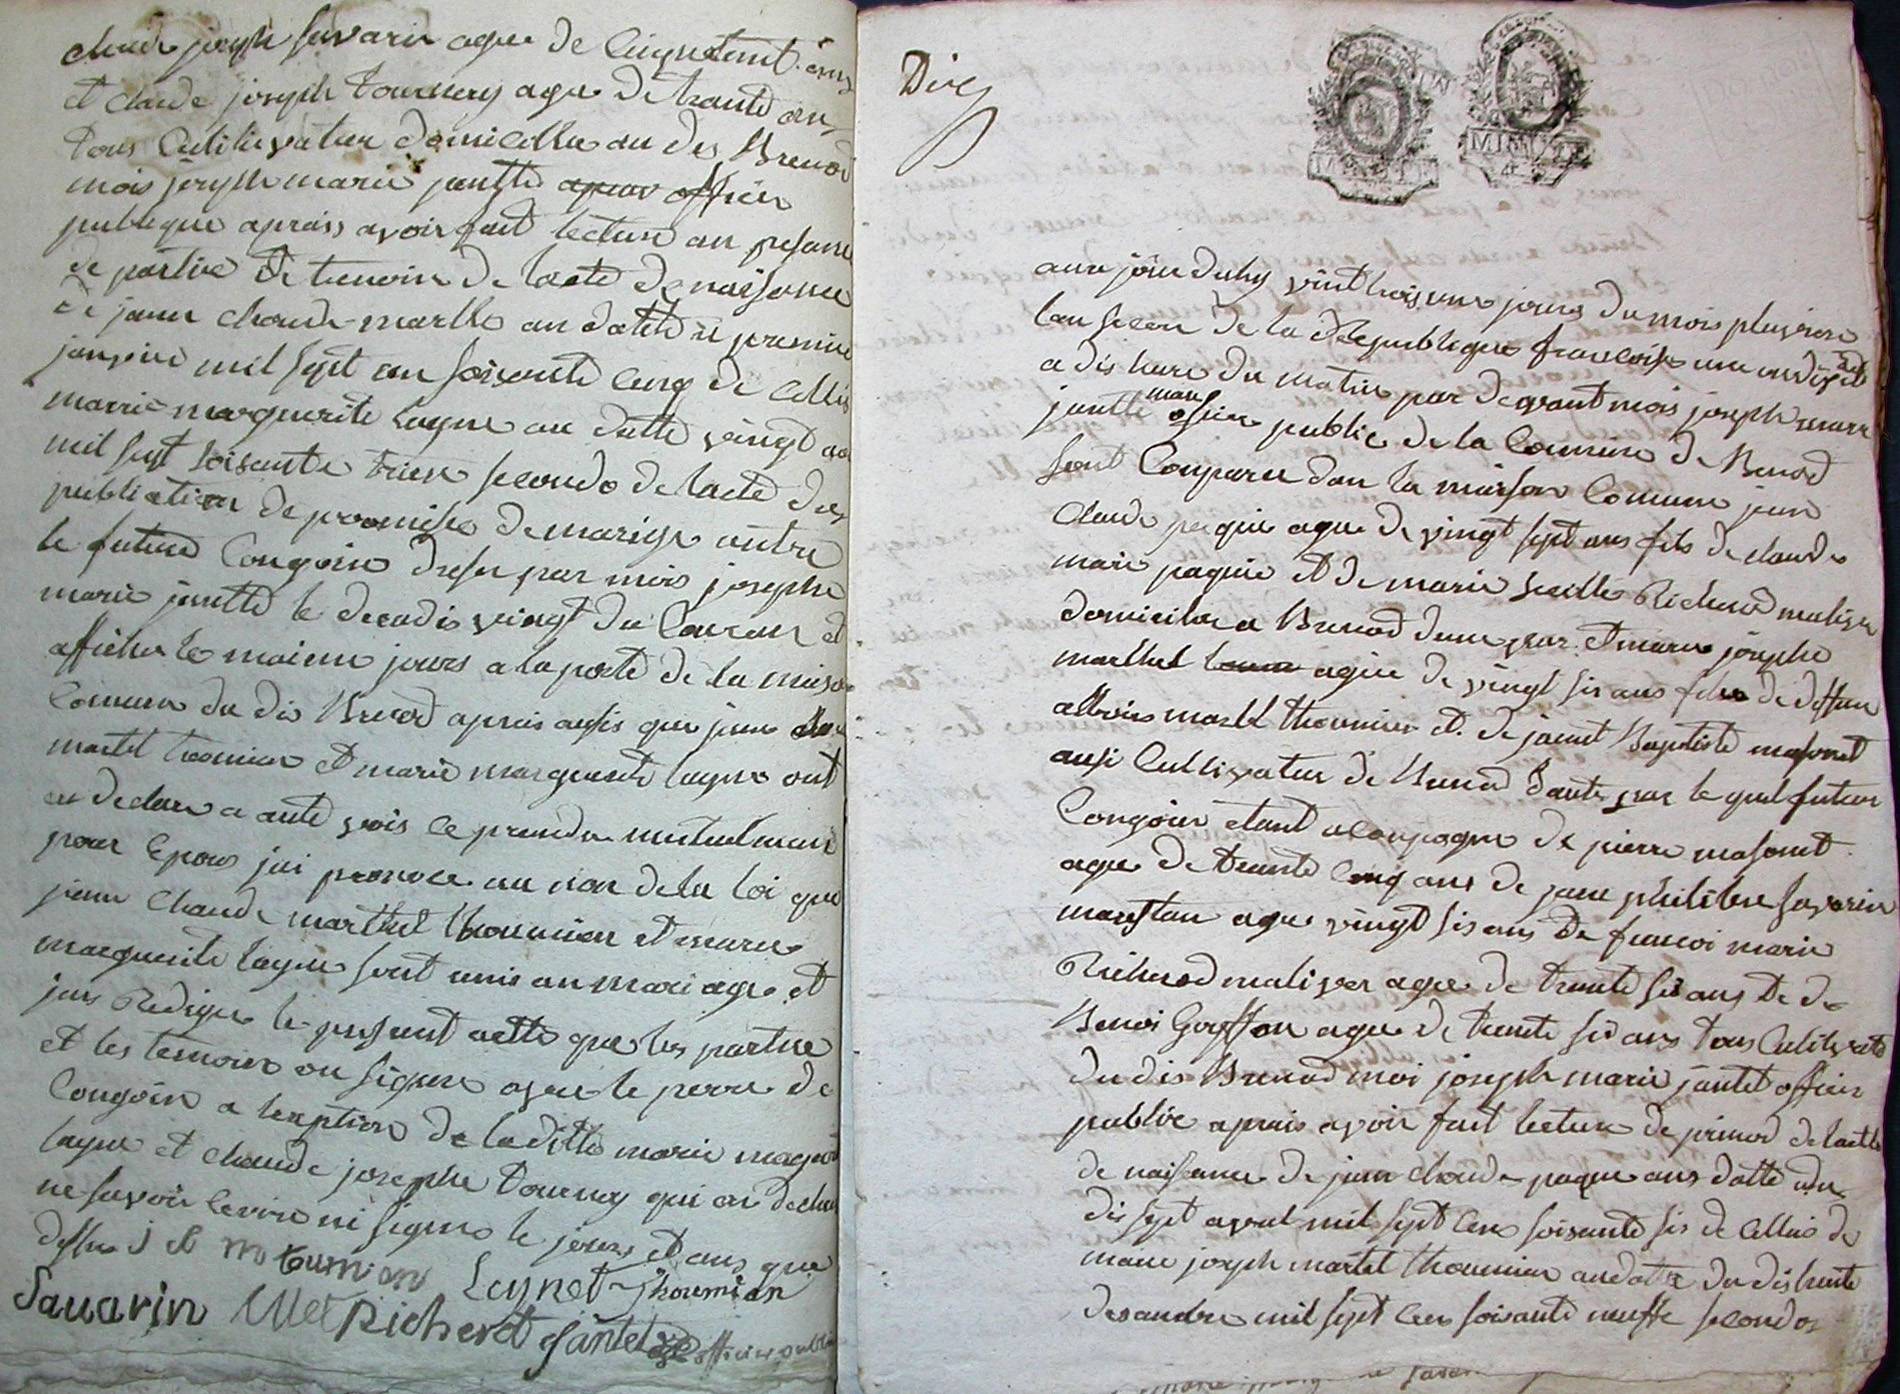 claude joseph savarin agee de Cinquant ans
et claude joseph tournery agee de trante an
tous Cultivateur domicillie au dis Brenod
mois joseph marie jantte officier
publique apraiss avoir fait lecture an presance
de partiee et temoin de lacte de naissance
de jann claude martlle an datte du premier
janvier mil sept an soisante cinq de cellui
marrie marguerite layne au datte vingt
mil sept soisante trixe secondo de lacte des
publication de promise de mariage antre
le future Congoin dresse par mois josephe
marie jantte le decadis vingt du Couran et
affichee le maieme jours a la porte de la maison
Comune du dis Brenod aprais ausis que jean
martel toomier et marie marguerite layne ont
declare a aute vois ce prandre mutuelman
pour epous jai prononce au non de la loi que
jean Claude marthel thoumion et marie
marguerite layne sont unis an mariage et
jais Rediger le present actte que les partiee
et les temoin on signee avec le perre de
Congoin a lexption de laditte marie margueri
layne et claude josephe tournery qui on declare
ne savoir Cerire ni signer le jours et ans que
dessus j cl m toumion Leynet Thoumion
Savarin Richerot jantet officier public
Dix
aux joiur duhy vint troisieme jours du mois pluviose
lan secon de la Republique francoise une indivisible
a dis heure du matin par devant mois joseph marie
jantte officier public de la Commune de Brenod
sont Comparu dan la maison Comune jean
Claude paquie agee de vingt sept ans fils de claude
marie paquie et de marie Richerod maliver
domicilie a Brenod dune par et marie josephe
marthel agee de vingt sis ans fille de deffun
martel thoumier et de janne Baptiste masonet
ausi Cultivateur de Brenod dautre par le quel futeur
Congoin etant acompagne de pierre masonet
agee de trante cinq ans de jean philibere savarin
agee vingt sis ans de francoi marie
Richerod maliver agee de trante sis ans et de
Benoi Goyffon agee de trante sis ans tous Cultivate
du dis Brenod moi joseph marie jantet officier
public aprais avoir fait lecture de primed de lactte
de naisance de jean claude paque ans datte du
dis sept avril mil sept cen soisante sis de cellui de
marie joseph martel thoumion andatte du dis huite
desandre mil sept cen soisante neuffe secondos